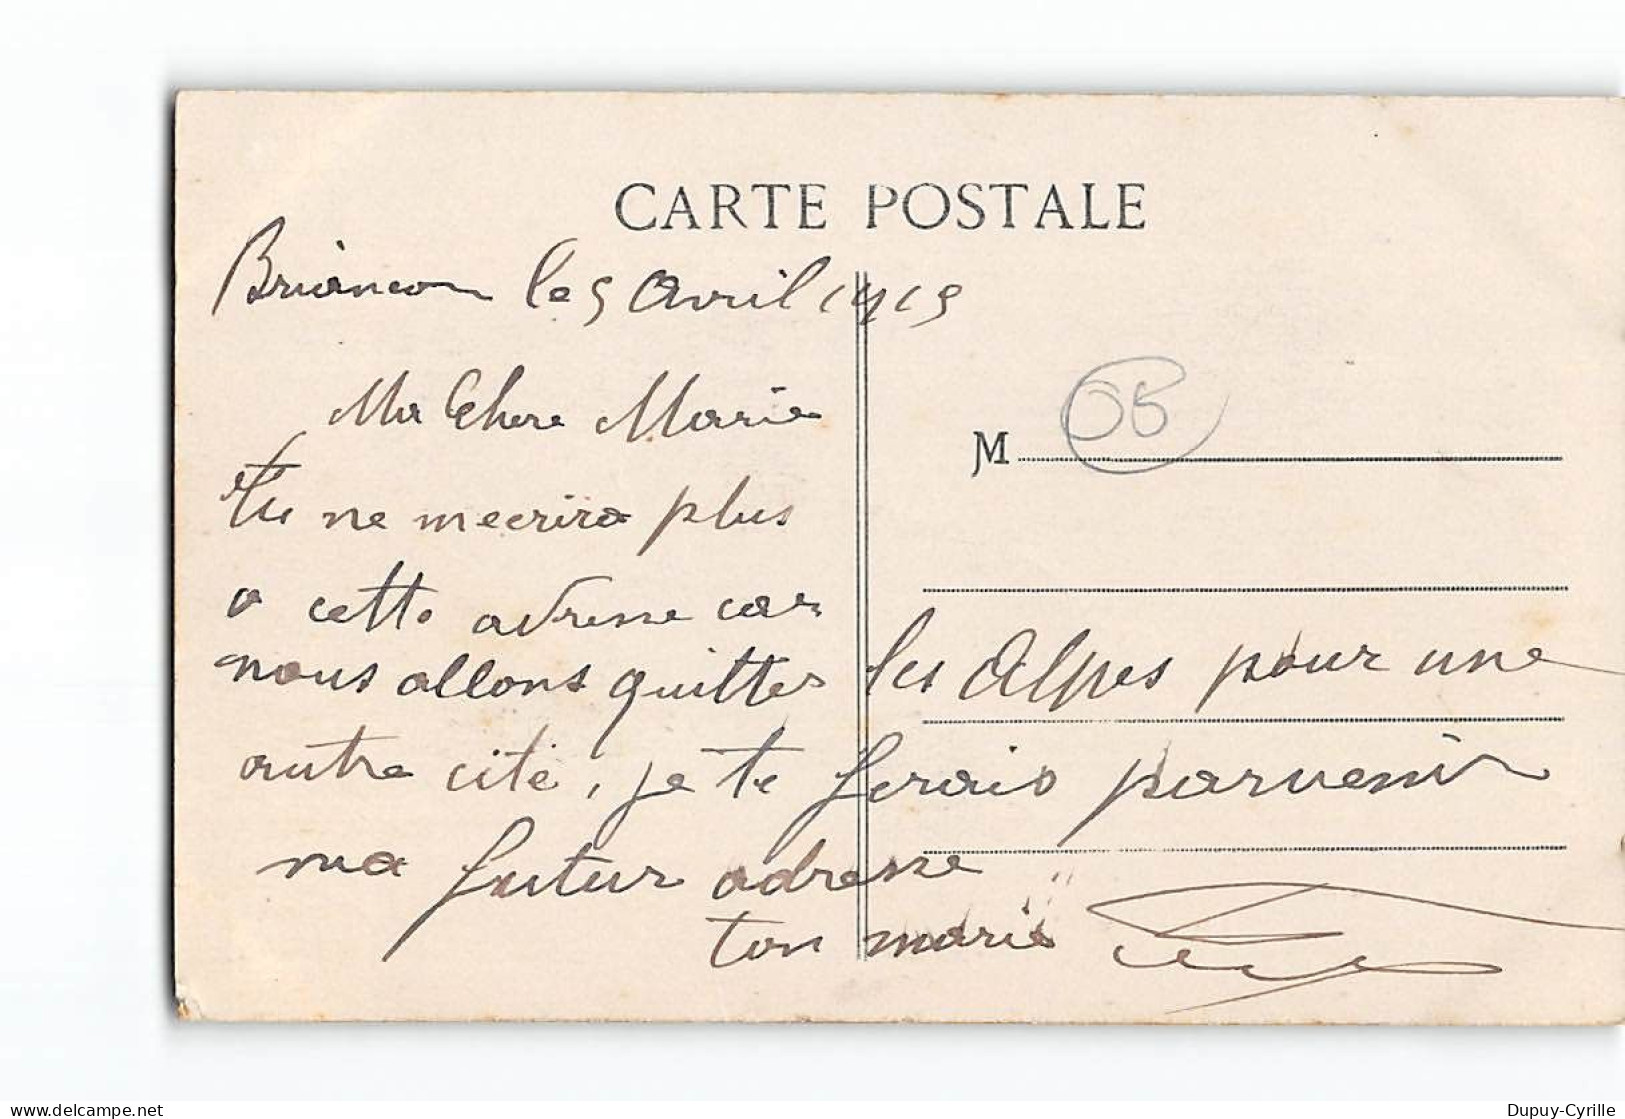 CARTE POSTALE
Briancon le 5 Avril 1915
Ma Chere Marie
tu ne mecrira plus
a cette adresse car
nous allons quitter les Alpes pour une
autre cité, je te ferais parvenir
ma futur adresse
ton marie
M
05
Dupuy-Cyrille